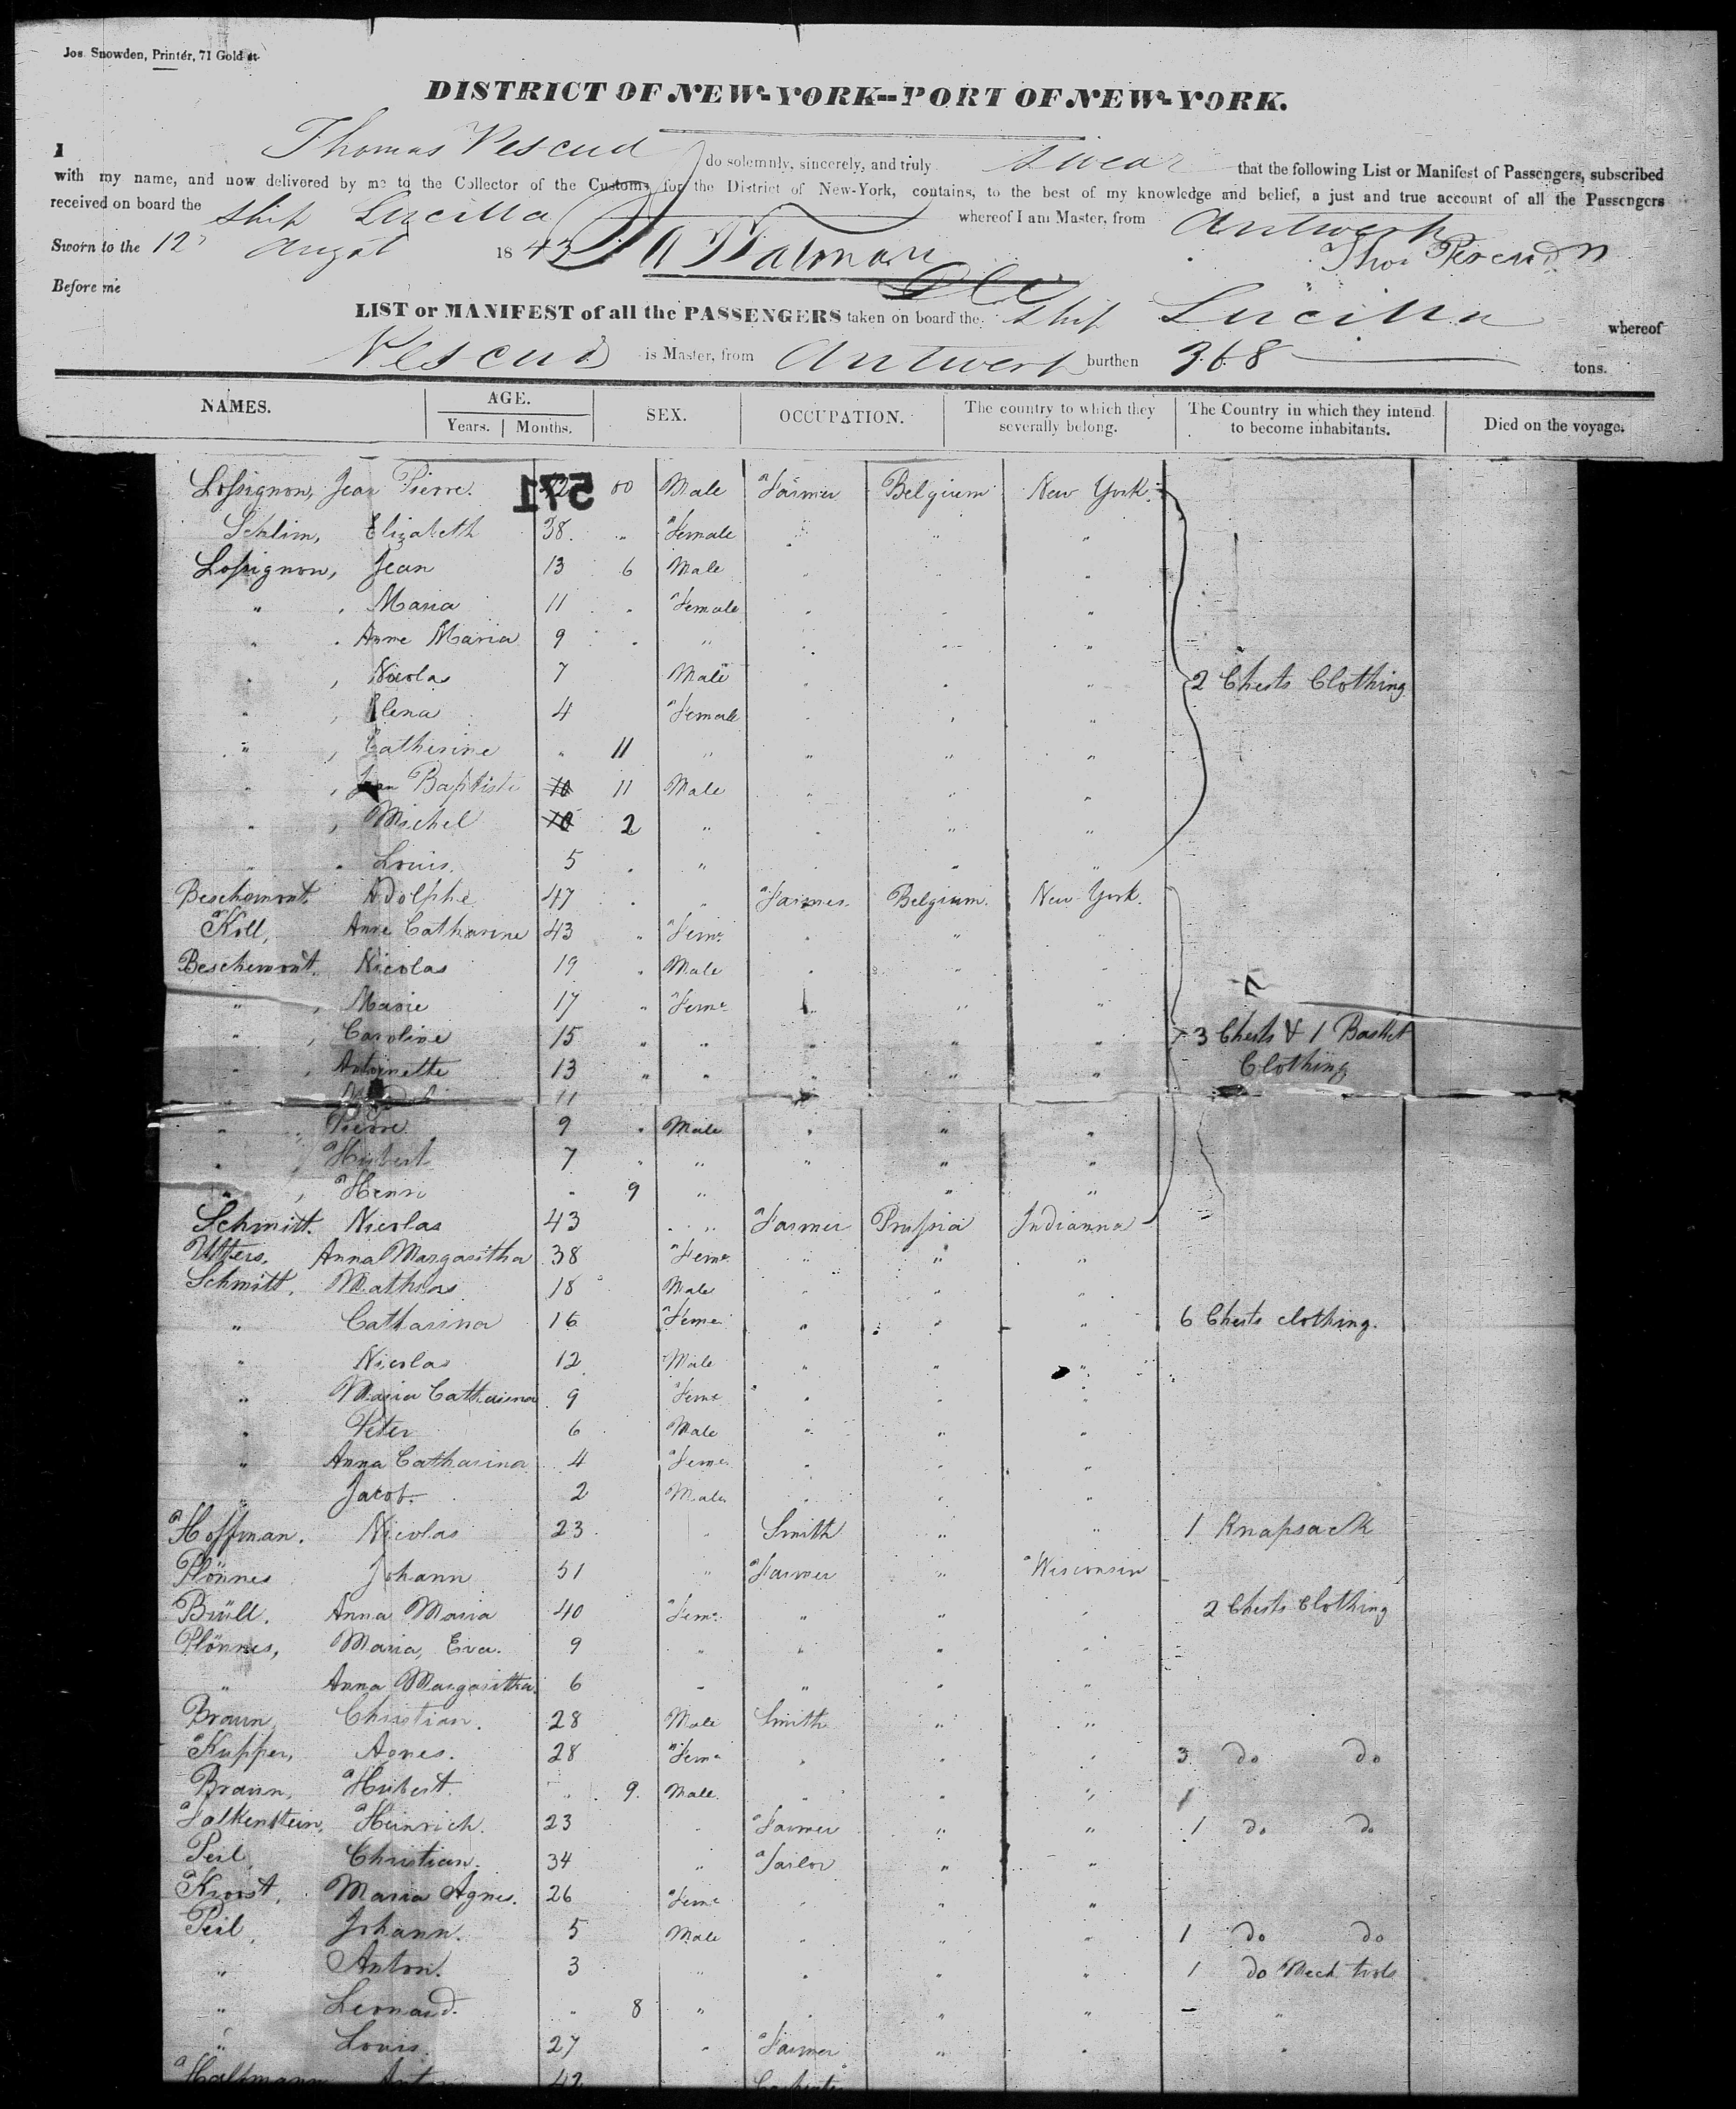 Jos. Snowden, Printer, 71 Gold st.
DISTRICT OF NEW-YORK--PORT OF NEW-YORK.
I Thomas Pescud do solemnly, sincerely, and truly swear that the following List or Manifest of Passengers, subscribed
with my name, and now delivered by me to the Collector of the Customs for the District of New-York, contains, to the best of my knowledge and belief, a just and true account of all the Passengers
received on board the Ship Lucilla whereof I am Master, from Antwerp
Sworn to the 12 August 1843 Thos Pescud
Before me
LIST or MANIFEST of all the PASSENGERS taken on board the Ship Lucilla whereof
Pescud is Master, from Antwerp burthen 368 tons.
NAMES. AGE. SEX. OCCUPATION. The country to which they severally belong. The Country in which they intend to become inhabitants. Died on the voyage.
Years. Months.
571
Lossignon, Jean Pierre. 00 Male Farmer Belgium New York.
Schlim, Elizabeth 38. " Female " " "
Lossignon, Jean 13 6 Male " " "
" , Maria 11 " Female " " "
" . Anne Maria 9 " " " " "
" , Nicolas 7 Male " " " 2 Chests Clothing
" , Elena 4 Female " " "
" , Catherine " 11 " " " "
" , Jean Baptiste 10 11 Male " " "
" , Michel 10 2 " " " "
" . Louis. 5 " " " "
Beschemont. Adolphe 47 " " Farmer. Belgium. New York.
Koll, Anne Catharine 43 " Feme " " "
Beschemont. Nicolas 19 " Male " " "
" , Marie 17 " Feme " " "
" , Caroline 15 " " " " " 3 Chests & 1 Basket
" , Antoinette 13 " " " " " Clothing
11
" , Pierre 9 " Male " " "
" , Hubert 7 " " " " "
" , Henri " 9 " " "
Schmitt. Nicolas 43 " Farmer Prussia Indianna
Utters, Anna Margaritha 38 Feme " " "
Schmitt, Mathias 18 Male " " "
" Catharina 16 Feme " " " 6 Chests clothing.
" Nicolas 12 Male " " "
" Maria Catharina 9 Feme " " "
" Peter 6 Male " " "
" Anna Catharina 4 Feme " " "
" Jacob. 2 Male " " "
Hoffman. Nicolas 23 " Smith " " 1 Knapsack
Plönnes Johann 51 " Farmer " Wisconsin
Brüll. Anna Maria 40 Feme " " " 2 Chests Clothing
Plönnes, Maria, Eva. 9 " " " "
" Anna Margaritha. 6 " " " "
Braun Christian. 28 Male Smith " "
Kupper, Agnes. 28 Feme " " " 3 do do
Braun, Hubert. " 9. Male. " " " 1
Falkenstein, Heinrich. 23 " Farmer " " 1 do do
Peil Christian. 34 " Tailor " "
Kroost, Maria Agnes. 26 Feme " " "
Peil, Johann. 5 Male " " " 1 do do
" Anton. 3 " " " " 1 do Mech. tools
" Leonard. " 8 " " " " "
" Louis. 27 " Farmer " " "
Halfmann Anton 42